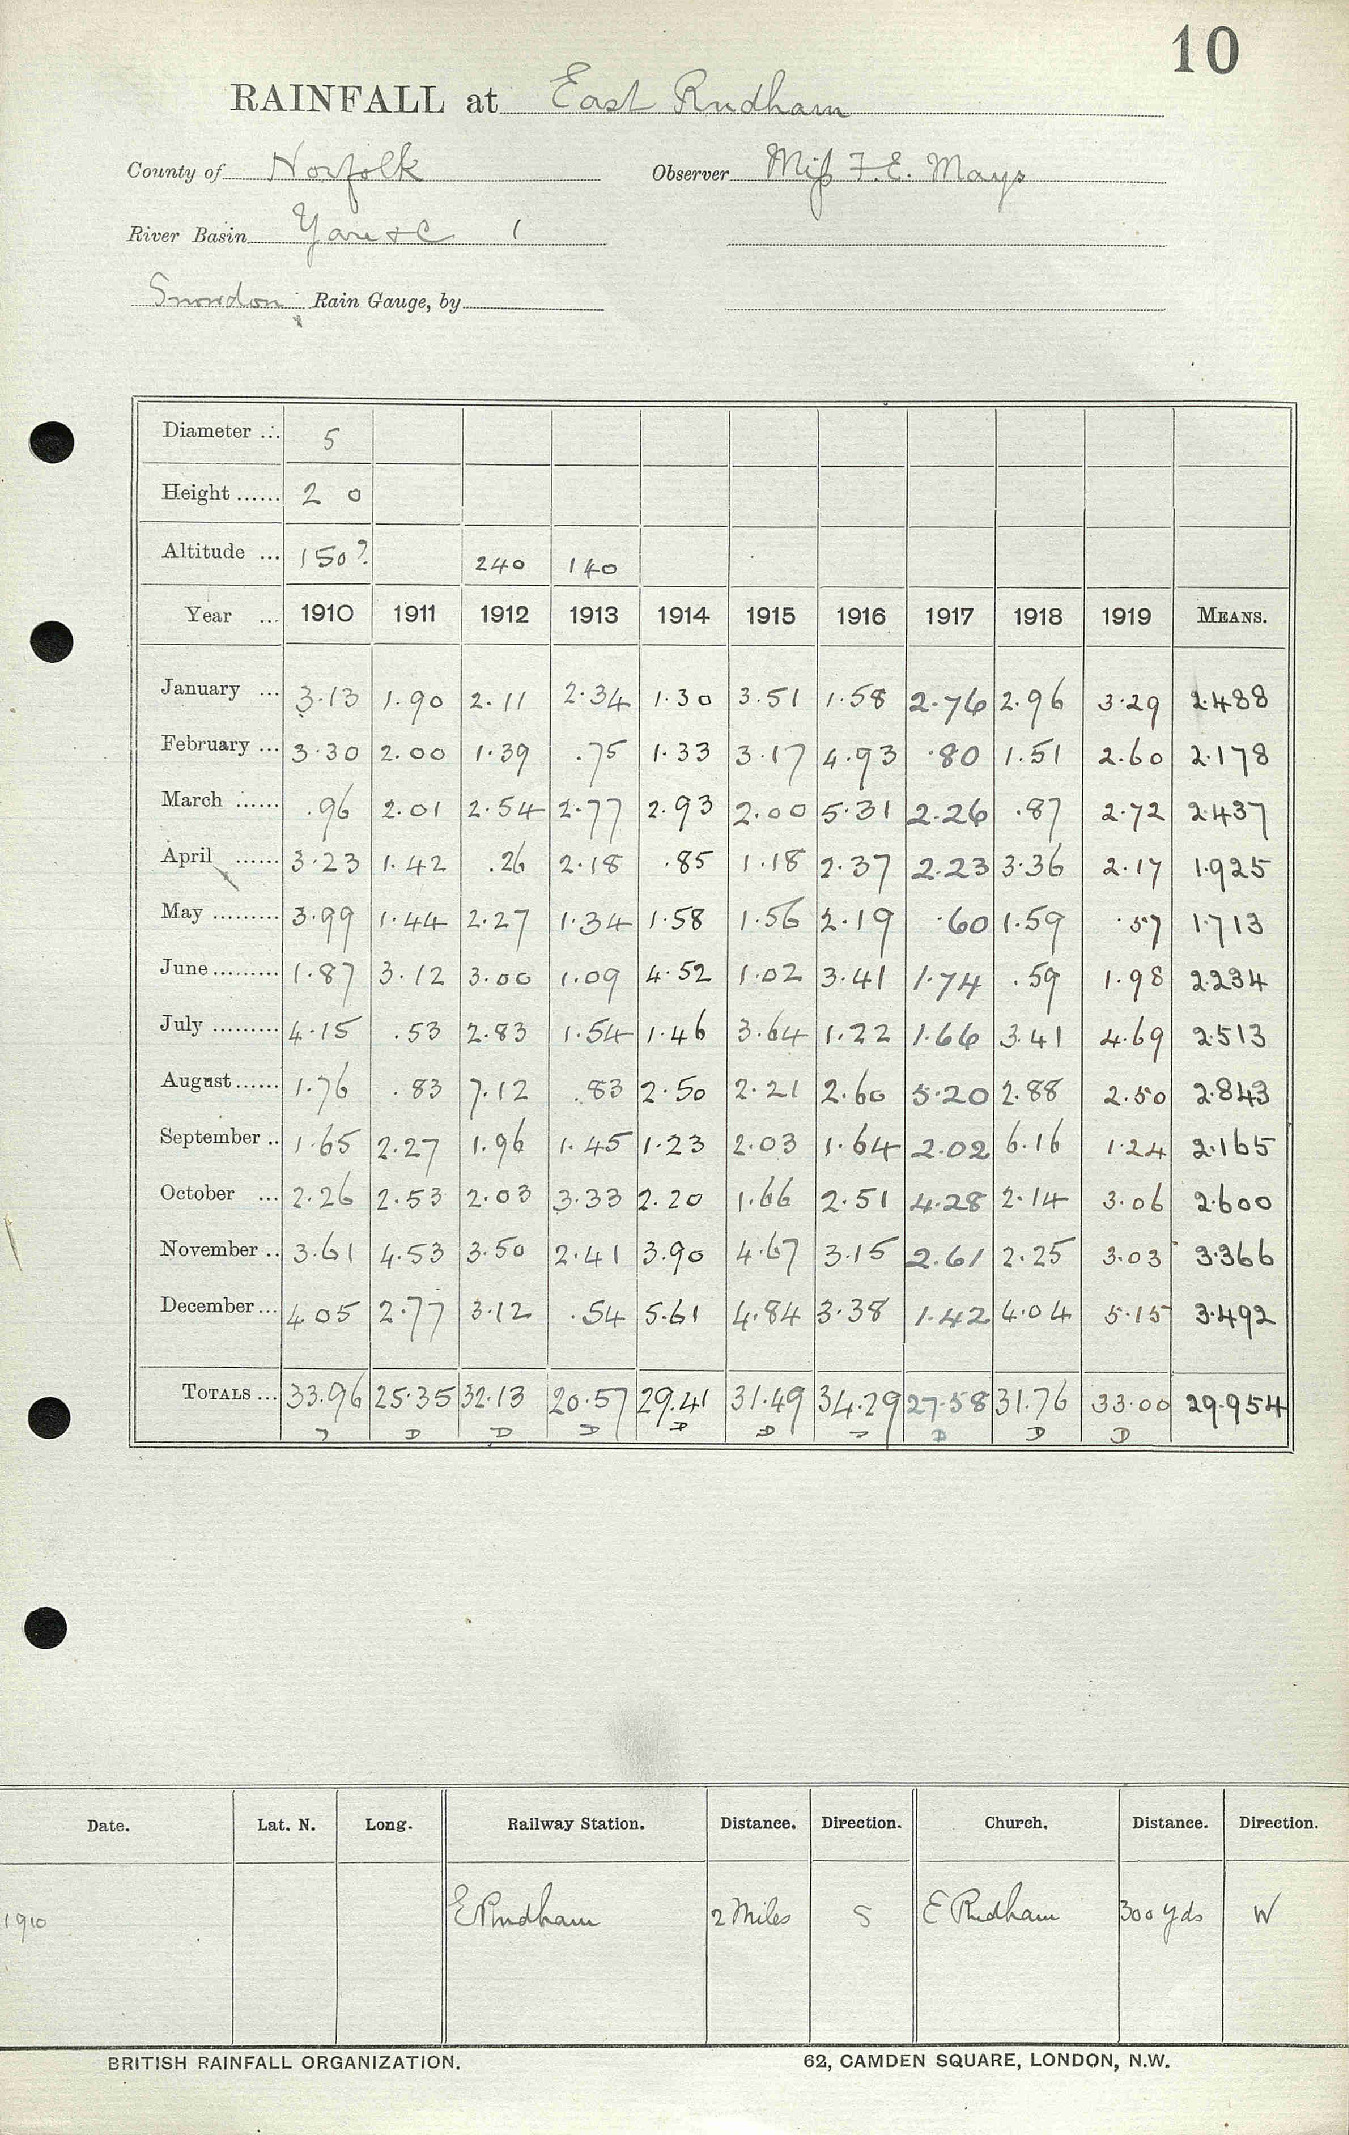 10
RAINFALL at East Rudham
County of Norfolk Observer Miss F. E. Mays
River Basin Yare &c 1
Snowdon Rain Gauge, by
Diameter ... 5
Height ...... 2 0
Altitude ... 150? 240 140
Year ... 1910 1911 1912 1913 1914 1915 1916 1917 1918 1919 MEANS.
January ... 3.13 1.90 2.11 2.34 1.30 3.51 1.58 2.76 2.96 3.29 2.488
February ... 3.30 2.00 1.39 .75 1.33 3.17 4.93 .80 1.51 2.60 2.178
March ...... .96 2.01 2.54 2.77 2.93 2.00 5.31 2.26 .87 2.72 2.437
April ...... 3.23 1.42 .26 2.18 .85 1.18 2.37 2.23 3.36 2.17 1.925
May ......... 3.99 1.44 2.27 1.34 1.58 1.56 2.19 .60 1.59 .57 1.713
June ......... 1.87 3.12 3.00 1.09 4.52 1.02 3.41 1.74 .59 1.98 2.234
July ......... 4.15 .53 2.83 1.54 1.46 3.64 1.22 1.66 3.41 4.69 2.513
August ...... 1.76 .83 7.12 .83 2.50 2.21 2.60 5.20 2.88 2.50 2.843
September .. 1.65 2.27 1.96 1.45 1.23 2.03 1.64 2.02 6.16 1.24 2.165
October ... 2.26 2.53 2.03 3.33 2.20 1.66 2.51 4.28 2.14 3.06 2.600
November .. 3.61 4.53 3.50 2.41 3.90 4.67 3.15 2.61 2.25 3.03 3.366
December ... 4.05 2.77 3.12 .54 5.61 4.84 3.38 1.42 4.04 5.15 3.492
TOTALS ... 33.96 25.35 32.13 20.57 29.41 31.49 34.29 27.58 31.76 33.00 29.954
D D D D D D D D
Date. Lat. N. Long. Railway Station. Distance. Direction. Church. Distance. Direction.
1910 E Rudham 2 Miles S E Rudham 300 yds W
BRITISH RAINFALL ORGANIZATION. 62, CAMDEN SQUARE, LONDON, N.W.